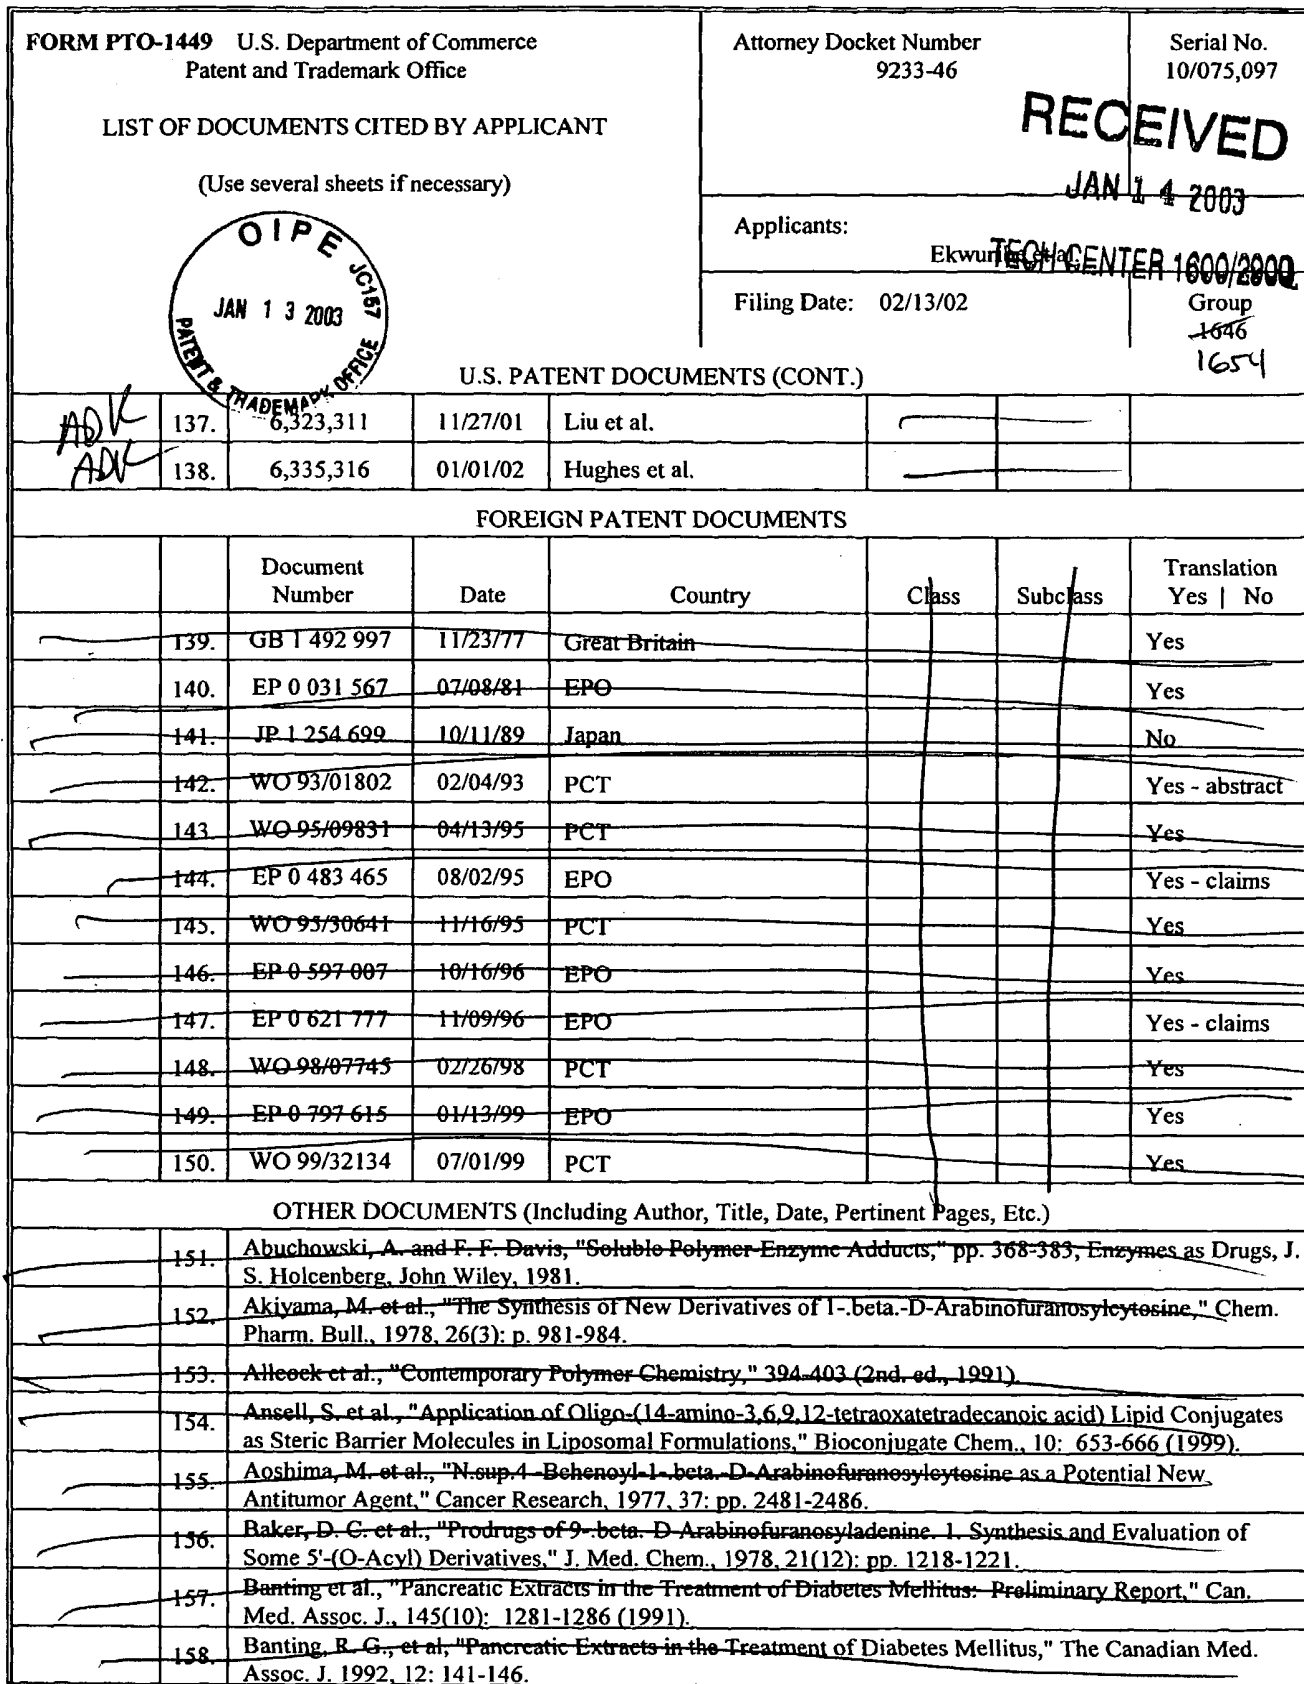 FORM PTO-1449 U.S. Department of Commerce
Patent and Trademark Office
LIST OF DOCUMENTS CITED BY APPLICANT
(Use several sheets if necessary)
Attorney Docket Number
9233-46
Serial No.
10/075,097
RECEIVED
JAN 1 4 2003
TECH CENTER 1600/2900
Applicants:
Filing Date: 02/13/02
Group
1646
1654
OIPE JC157
JAN 1 3 2003
PATENT & TRADEMARK OFFICE
U.S. PATENT DOCUMENTS (CONT.)
ADK 137. 6,323,311 11/27/01 Liu et al.
ADK 138. 6,335,316 01/01/02 Hughes et al.
FOREIGN PATENT DOCUMENTS
Document Number Date Country Class Subclass Translation Yes | No
139. GB 1 492 997 11/23/77 Great Britain Yes
140. EP 0 031 567 07/08/81 EPO Yes
141. JP 1 254 699 10/11/89 Japan No
142. WO 93/01802 02/04/93 PCT Yes - abstract
143. WO 95/09831 04/13/95 PCT Yes
144. EP 0 483 465 08/02/95 EPO Yes - claims
145. WO 95/30641 11/16/95 PCT Yes
146. EP 0 597 007 10/16/96 EPO Yes
147. EP 0 621 777 11/09/96 EPO Yes - claims
148. WO 98/07745 02/26/98 PCT Yes
149. EP 0 797 615 01/13/99 EPO Yes
150. WO 99/32134 07/01/99 PCT Yes
OTHER DOCUMENTS (Including Author, Title, Date, Pertinent Pages, Etc.)
151. Abuchowski, A. and F. F. Davis, "Soluble Polymer-Enzyme Adducts," pp. 368-383, Enzymes as Drugs, J.
S. Holcenberg, John Wiley, 1981.
152. Akiyama, M. et al., "The Synthesis of New Derivatives of 1-.beta.-D-Arabinofuranosylcytosine," Chem.
Pharm. Bull., 1978, 26(3): p. 981-984.
153. Allcock et al., "Contemporary Polymer Chemistry," 394-403 (2nd. ed., 1991).
154. Ansell, S. et al., "Application of Oligo-(14-amino-3,6,9,12-tetraoxatetradecanoic acid) Lipid Conjugates
as Steric Barrier Molecules in Liposomal Formulations," Bioconjugate Chem., 10: 653-666 (1999).
155. Aoshima, M. et al., "N.sup.4 -Behenoyl-1-.beta.-D-Arabinofuranosylcytosine as a Potential New
Antitumor Agent," Cancer Research, 1977, 37: pp. 2481-2486.
156. Baker, D. C. et al., "Prodrugs of 9-.beta.-D-Arabinofuranosyladenine. 1. Synthesis and Evaluation of
Some 5'-(O-Acyl) Derivatives," J. Med. Chem., 1978, 21(12): pp. 1218-1221.
157. Banting et al., "Pancreatic Extracts in the Treatment of Diabetes Mellitus: Preliminary Report," Can.
Med. Assoc. J., 145(10): 1281-1286 (1991).
158. Banting, R. G., et al, "Pancreatic Extracts in the Treatment of Diabetes Mellitus," The Canadian Med.
Assoc. J. 1992, 12: 141-146.